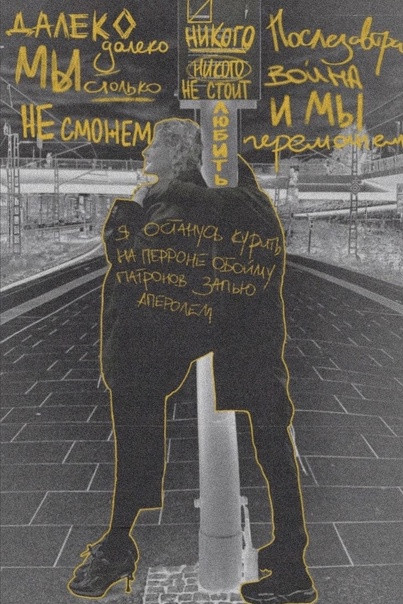 ДАЛЕКО
далеко
МЫ
столько
НЕ СМОЖЕМ
НИКОГО
НИКОГО
НЕ СТОИТ
ЛЮБИТЬ
Послезавтра
ВОЙНА
И МЫ
переможем
Я ОСТАНУСЬ КУРИТЬ
НА ПЕРРОНЕ ОБОЙМУ
ПАТРОНОВ ЗАПЬЮ
АПЕРОЛЕМ